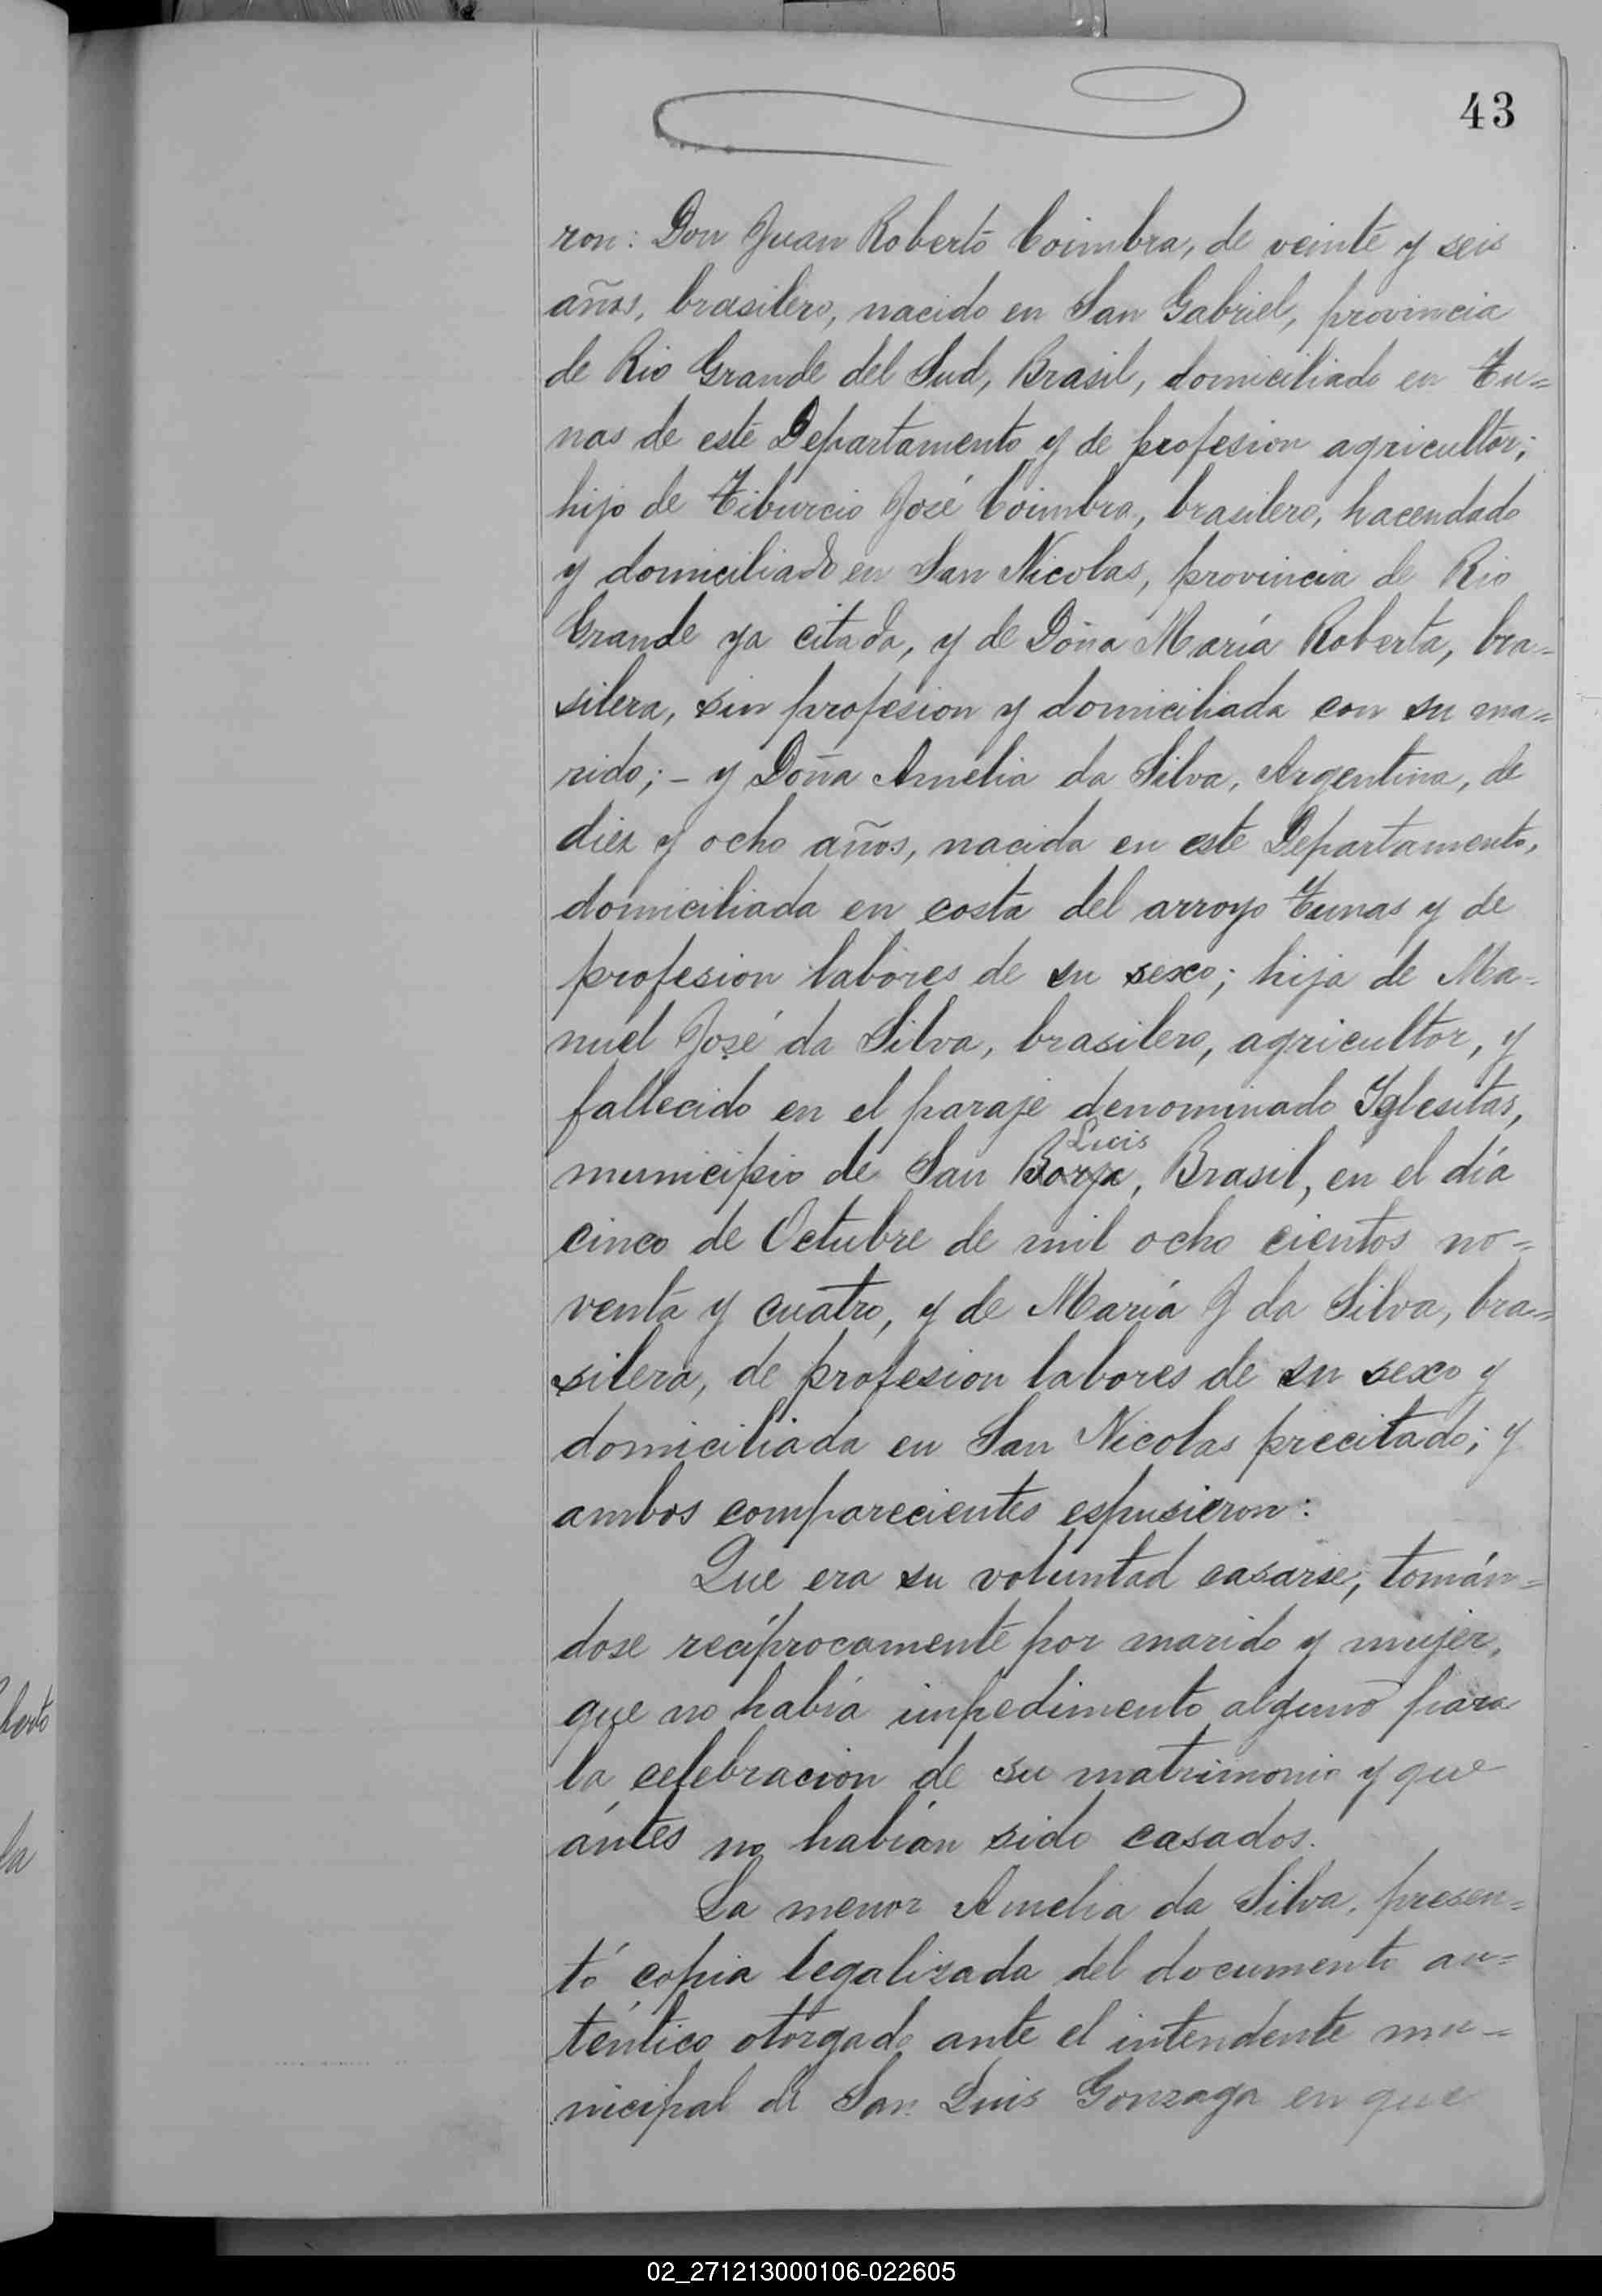 43
ron: Don Juan Roberto Coimbra, de veinte y seis
años, brasilero, nacido en San Gabriel, provincia
de Rio Grande del Sud, Brasil, domiciliado en Tu=
nas de este Departamento y de profesion agricultor;
hijo de Tiburcio José Coimbra, brasilero, hacendado
y domiciliado en San Nicolas, provincia de Rio
Grande ya citada, y de Doña María Roberta, bra=
silera, sin profesion y domiciliada con su ma=
rido; - y Doña Amelia da Silva, Argentina, de
diez y ocho años, nacida en este Departamento,
domiciliada en costa del arroyo Tunas y de
profesion labores de su sexo; hija de Ma=
nuel José da Silva, brasilero, agricultor, y
fallecido en el paraje denominado Iglesitas,
Luis
municipio de San Borja, Brasil, en el día
cinco de Octubre de mil ocho cientos no=
venta y cuatro, y de María J da Silva, bra=
silera, de profesion labores de su sexo y
domiciliada en San Nicolas precitado; y
ambos comparecientes espusieron:
Que era su voluntad casarse, tomán=
dose recíprocamente por marido y mujer,
que no había impedimento alguno para
la celebracion de su matrimonio y que
ántes no habían sido casados.
La menor Amelia da Silva, presen=
tó copia legalizada del documento au=
téntico otorgado ante el intendente mu=
nicipal de San Luis Gonzaga en que
berto
la
02_271213000106-022605